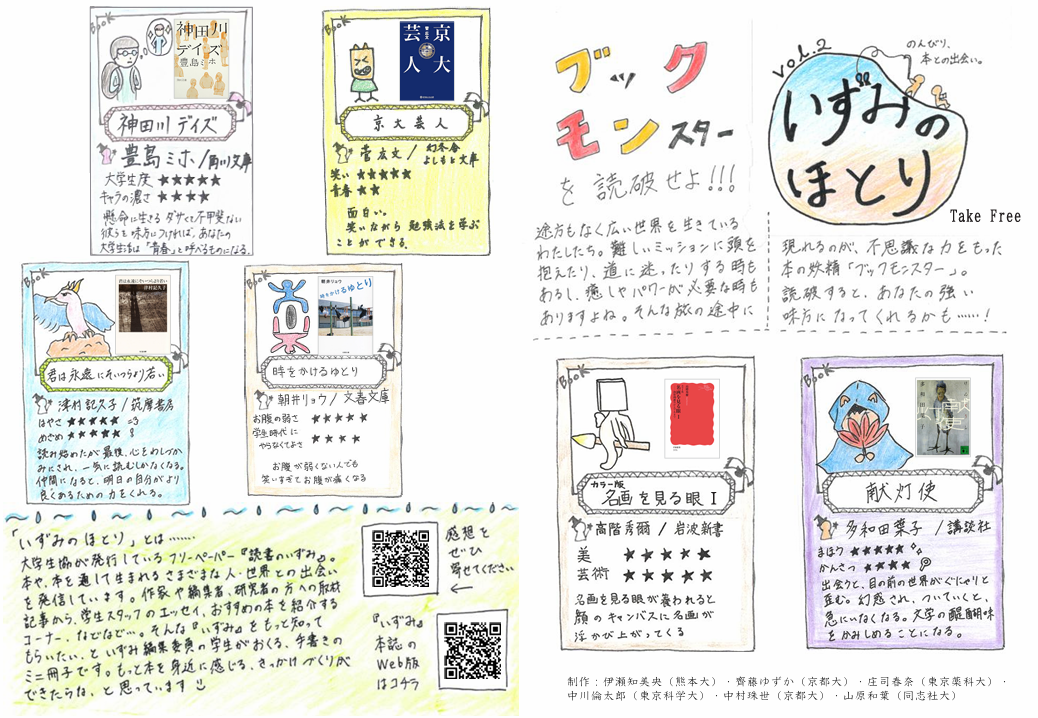 vol.2
いずみの
ほとり
のんびり、
本との出会い。
Take Free
ブック
モンスター
を読破せよ!!!
途方もなく広い世界を生きている
わたしたち。難しいミッションに頭を
抱えたり、道に迷ったりする時も
あるし、癒しやパワーが必要な時も
ありますよね。そんな旅の途中に
現れるのが、不思議な力をもった
本の妖精「ブックモンスター」。
読破すると、あなたの強い
味方になってくれるかも……!
Book
カラー版
名画を見る眼 I
高階秀爾 / 岩波新書
美 ★★★★★
芸術 ★★★★★
名画を見る眼が養われると
顔のキャンバスに名画が
浮かび上がってくる
Book
献灯使
多和田葉子 / 講談社
まほう ★★★★★
かんさつ ★★★★
出会うと、目の前の世界がぐにゃりと
歪む。幻惑され、ついていくと、
急にいなくなる。文学の醍醐味
をかみしめることになる。
制作:伊瀬知美央(熊本大)・齊藤ゆずか(京都大)・庄司春奈(東京薬科大)・
中川倫太郎(東京科学大)・中村珠世(京都大)・山原和葉(同志社大)
Book
神田川
デイズ
豊島ミホ
神田川デイズ
豊島ミホ/角川文庫
大学生度 ★★★★★
キャラの濃さ ★★★★
懸命に生きる ダサくて不甲斐ない
彼らを味方につければ、あなたの
大学生活は「青春」と呼べるものになる。
Book
京大
芸人
京大芸人
菅広文 / 幻冬舎
よしもと文庫
笑い ★★★★★
青春 ★★
面白い。
笑いながら 勉強法を学ぶ
ことが できる。
Book
君は永遠にそいつらより若い
津村記久子
君は永遠にそいつらより若い
津村記久子/筑摩書房
はやさ ★★★★★
めざめ ★★★★★
読み始めたが最後、心をわしづか
みにされ、一気に読むしかなくなる。
仲間になると、明日の自分がより
良くあるための力をくれる。
Book
朝井リョウ
時をかけるゆとり
時をかけるゆとり
朝井リョウ/ 文春文庫
お腹の弱さ ★★★★★
学生時代に
やらなくてよさ ★★★★
お腹が弱くない人でも
笑いすぎてお腹が痛くなる
「いずみのほとり」とは……
大学生協が発行しているフリーペーパー『読書のいずみ』。
本や、本を通して生まれるさまざまな人・世界との出会い
を発信しています。作家や編集者、研究者の方への取材
記事から、学生スタッフのエッセイ、おすすめの本を紹介する
コーナー、などなど…。そんな『いずみ』をもっと知って
もらいたい、といずみ編集委員の学生がおくる、手書きの
ミニ冊子です。もっと本を身近に感じる、きっかけづくりが
できたらな、と思っています
感想を
ぜひ
寄せてください
←
『いずみ』
本誌の
Web版
はコチラ